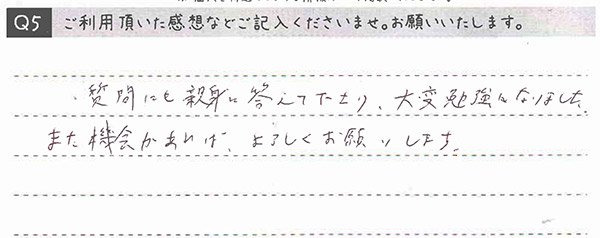 Q5 ご利用頂いた感想などご記入くださいませ。お願いいたします。
・質問にも親身に答えて下さり、大変勉強になりました。
また機会があれば、よろしくお願いします。